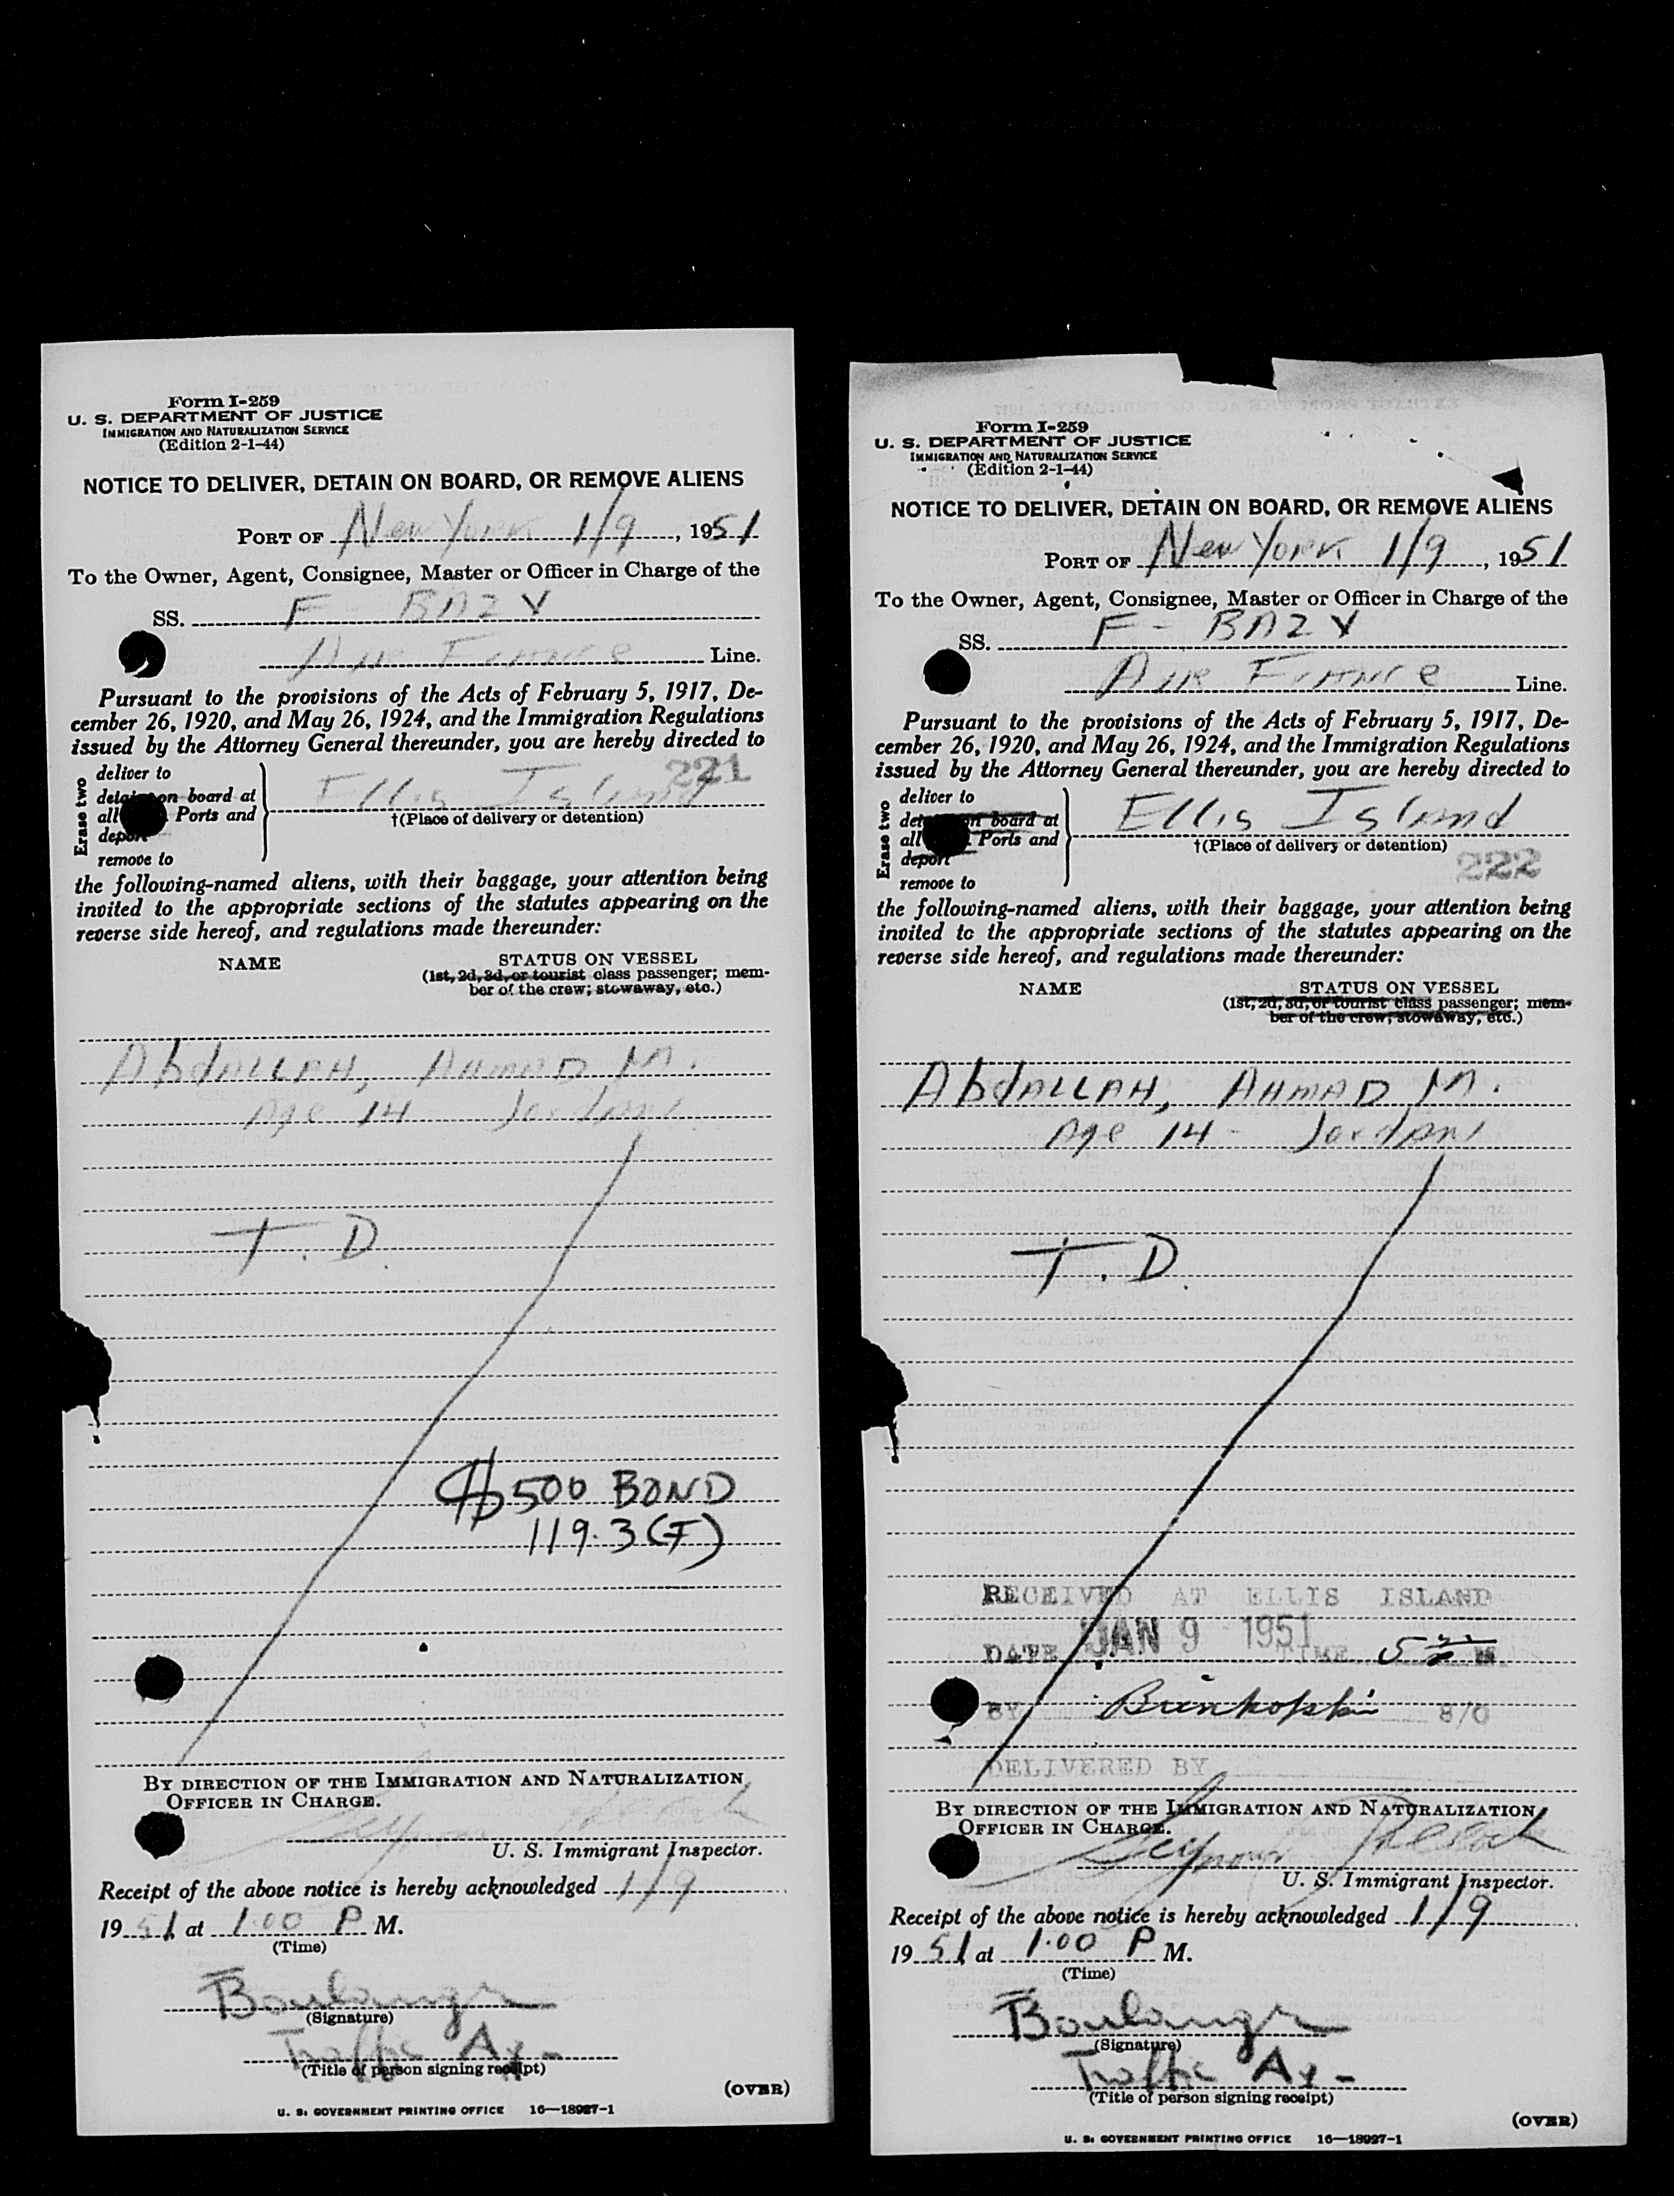 Form I-259
U. S. DEPARTMENT OF JUSTICE
IMMIGRATION AND NATURALIZATION SERVICE
(Edition 2-1-44)
NOTICE TO DELIVER, DETAIN ON BOARD, OR REMOVE ALIENS
PORT OF New York 1/9, 1951
To the Owner, Agent, Consignee, Master or Officer in Charge of the
SS. F - BAZV
Air France Line.
Pursuant to the provisions of the Acts of February 5, 1917, De-
cember 26, 1920, and May 26, 1924, and the Immigration Regulations
issued by the Attorney General thereunder, you are hereby directed to
221
Erase two
deliver to
on board at
all Ports and
deport
remove to
Ellis Island
†(Place of delivery or detention)
the following-named aliens, with their baggage, your attention being
invited to the appropriate sections of the statutes appearing on the
reverse side hereof, and regulations made thereunder:
NAME STATUS ON VESSEL
(1st, 2d, 3d, or tourist class passenger; mem-
ber of the crew; stowaway, etc.)
Abdallah, Ahmad M.
Age 14 Jordani
T. D.
$500 BOND
119.3(F)
BY DIRECTION OF THE IMMIGRATION AND NATURALIZATION
OFFICER IN CHARGE.
Seymour
U. S. Immigrant Inspector.
Receipt of the above notice is hereby acknowledged 1/9
1951 at 1:00 P M.
(Time)
(Signature)
Traffic
(Title of person signing receipt)
(OVER)
U. S. GOVERNMENT PRINTING OFFICE 16—18927-1
Form I-259
U. S. DEPARTMENT OF JUSTICE
IMMIGRATION AND NATURALIZATION SERVICE
(Edition 2-1-44)
NOTICE TO DELIVER, DETAIN ON BOARD, OR REMOVE ALIENS
PORT OF New York 1/9, 1951
To the Owner, Agent, Consignee, Master or Officer in Charge of the
SS. F - BAZV
Air France Line.
Pursuant to the provisions of the Acts of February 5, 1917, De-
cember 26, 1920, and May 26, 1924, and the Immigration Regulations
issued by the Attorney General thereunder, you are hereby directed to
Erase two
deliver to
on board at
all Ports and
deport
remove to
Ellis Island
†(Place of delivery or detention)
222
the following-named aliens, with their baggage, your attention being
invited to the appropriate sections of the statutes appearing on the
reverse side hereof, and regulations made thereunder:
NAME STATUS ON VESSEL
(1st, 2d, 3d, or tourist class passenger; mem-
ber of the crew; stowaway, etc.)
Abdallah, Ahmad M.
Age 14 - Jordani
T. D.
RECEIVED AT ELLIS ISLAND
DATE JAN 9 1951 TIME M
BY S/O
DELIVERED BY
BY DIRECTION OF THE IMMIGRATION AND NATURALIZATION
OFFICER IN CHARGE.
Seymour
U. S. Immigrant Inspector.
Receipt of the above notice is hereby acknowledged 1/9
1951 at 1:00 P M.
(Time)
(Signature)
Traffic
(Title of person signing receipt)
(OVER)
U. S. GOVERNMENT PRINTING OFFICE 16—18927-1